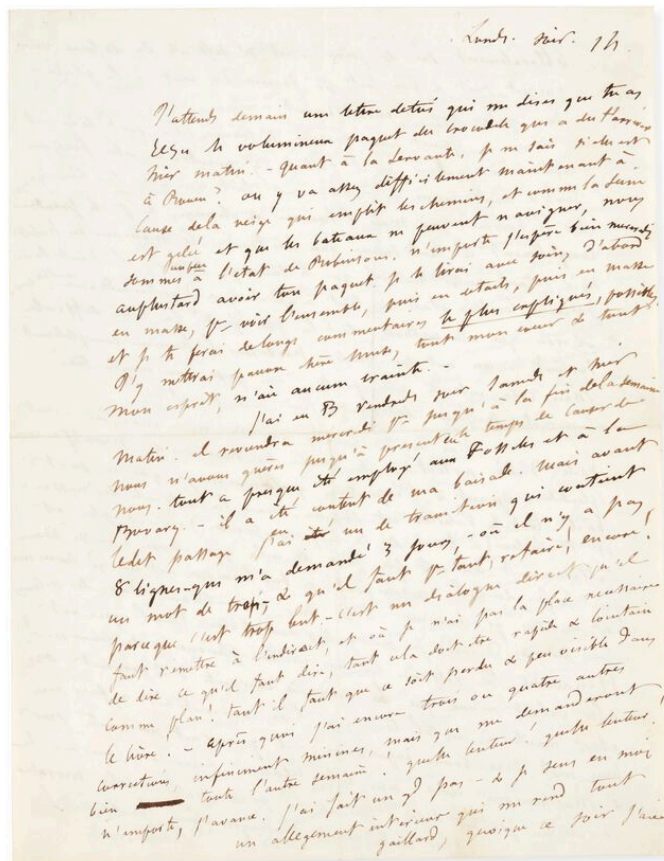 Lundi. soir. 1 h.
J'attends demain une lettre de toi qui me dises que tu as
reçu le volumineux paquet du crocodile qui a du t'arriver
hier matin. - quant à la Servante, je ne sais si elle est
à Rouen? on y va assez difficilement maintenant à
cause de la neige qui emplit les chemins, et comme la Seine
est gelée et que les bateaux ne peuvent naviguer, nous
sommes presque à l'état de Robinsons. n'importe j'espère bien mercredi
au plus tard avoir ton paquet. je le lirai avec soin, d'abord
en masse, pr voir l'ensemble, puis en détails, puis en masse
et je te ferai de longs commentaires le plus expliqués, possible
J'y mettrai pauvre chère Muse, tout mon cœur & tout
mon esprit, n'aie aucune crainte. -
J'ai eu B vendredi soir Samedi et hier
matin. il reviendra mercredi pr jusqu'à la fin de la semaine
nous n'avons guères jusqu'à present eu le temps de causer de
nous. tout a presque été employé aux Fossiles et à la
Bovary. - il a été content de ma baisade. mais avant
ledit passage j'en ai un de transition qui contient
8 lignes - qui m'a demandé 3 jours, - où il n'y a pas
un mot de trop, & qu'il faut pr tant, refaire! encore!
parceque c'est trop lent - c'est un dialogue direct qu'il
faut remettre à l'indirect, et où je n'ai pas la place necessaire
de dire ce qu'il faut dire, tout cela doit être rapide & lointain
comme plan! tant il faut que ce soit perdu & peu visible dans
le livre! - après quoi j'ai encore trois ou quatre autres
corrections, infiniment minimes, mais qui me demanderont
bien toute l'autre semaine! quelle lenteur! quelle lenteur!
n'importe, j'avance. j'ai fait un gd pas - & je sens en moi
un allegement interieur qui me rend tout
gaillard, quoique ce soir j'aie